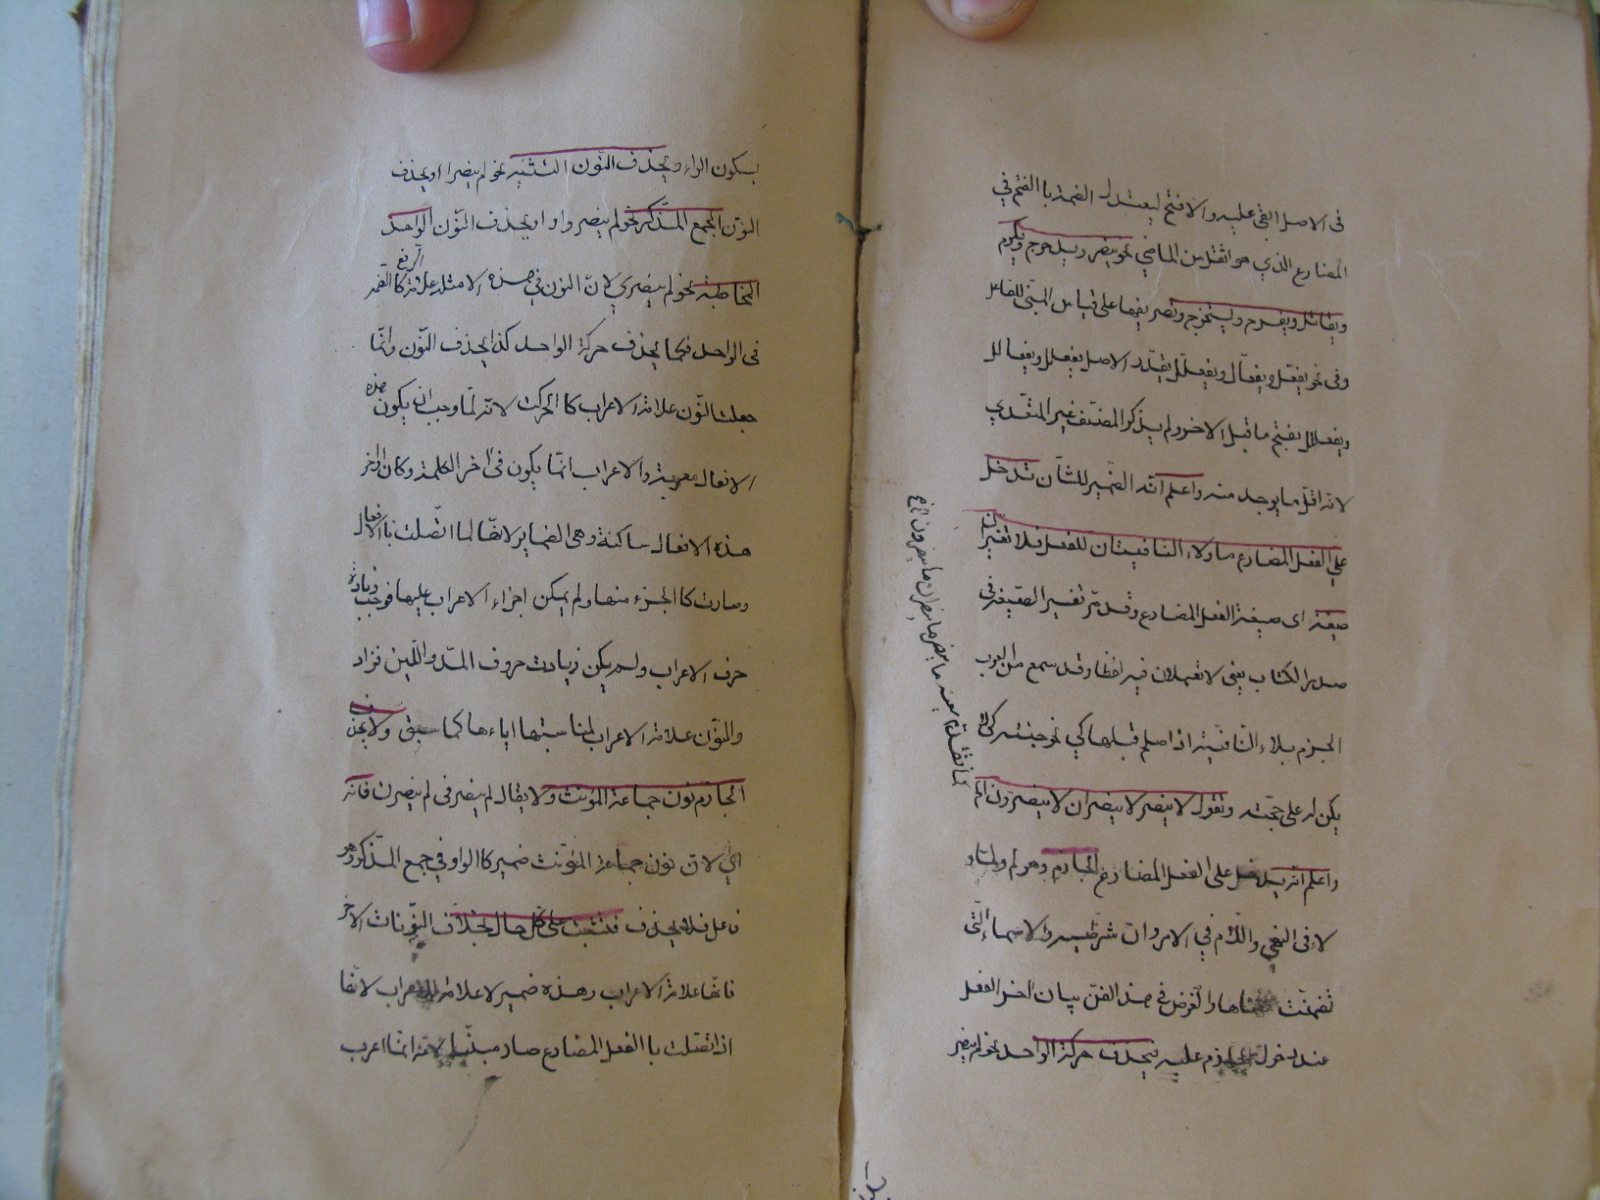 فى الاصل ابقى عليه والا فتح ليعتدل الضمة با الفتح في
المضارع الذي هو اثقل من الماضي نحو ينصر ويدحرج ويكرم
ويقاتل ويفرح ويستخرج وتصريفها على قياس المبنى للفاعل
وفى نحو يفتعل ويفعالّ ويفعللّ يقدر الاصل يفعلل ويفعالل
ويفعللل بفتح ماقبل الاخر ولم يذكر المصنف غير المتعدي
لانه اقل مايوجد منه واعلم انه الضمير للشأن تدخل
على الفعل المضارع ما ولاء النافيتان للفعل فلا تغيران
صيغته اى صيغة الفعل المضارع وقد مر تفسير الصيغة فى
صدر الكتاب يعنى لا تعملان فيه لفظا وقد سمع من العرب
الجزم بلاء النافية اذا صلح قبلها كي نحو جئته كى لا
يكن له على حجته وتقول لا ينصر لا ينصران لا ينصرون الخ
واعلم انه يدخل على الفعل المضارع الجازم وهو لم ولما و
لا فى النهي واللام في الامر وان شرطيه والاسماء التى
تضمنت معناها والغرض في هذا الفن بيان اخر الفعل
عند دخول الجازم عليه فيحذف حركة الواحد نحو لم ينصر
بسكون الراء ويحذف النون التثنيه نحو لم ينصرا او يحذف
النون الجمع المذكر نحو لم ينصروا و او يحذف النون الواحدة
المخاطبة نحو لم تنصري لانّ النون في هذه الامثلة علامة الرفع كا الضمة
فى الواحد فكما يحذف حركة الواحد كذا يحذف النون وانّما
جعلت النّون علامة الاعراب كا الحركت لانّه لمّا وجب ان يكون هذه
الافعال معربة والاعراب انّما يكون فى اخر الكلمة وكان اواخر
هذه الافعال ساكنة وهى الضماير لانّها لما اتصلت با الافعال
وصارت كا الجزء منها ولم يمكن اجراء الاعراب عليها فوجب زيادة
حرف الاعراب ولم يكن زيادت حروف المدّ واللين فزاد
والنّون علامة الاعراب لمناسبتها اياءها كما سبق ولا يحذف
الجازم نون جماعة المونث ولا يقال لم ينصر فى لم ينصرن فانه
اي لان نون جماعة المؤنث ضمير كا الواو في جمع المذكر وهو
فاعل فلا يحذف فتثبت على كل حال بخلاف النّونات الاخر
فانها علامة الاعراب وهذه ضمير لا علامة الاعراب لانها
اذا اتصلت با الفعل المضارع صار مبنيا لانه انما اعرب